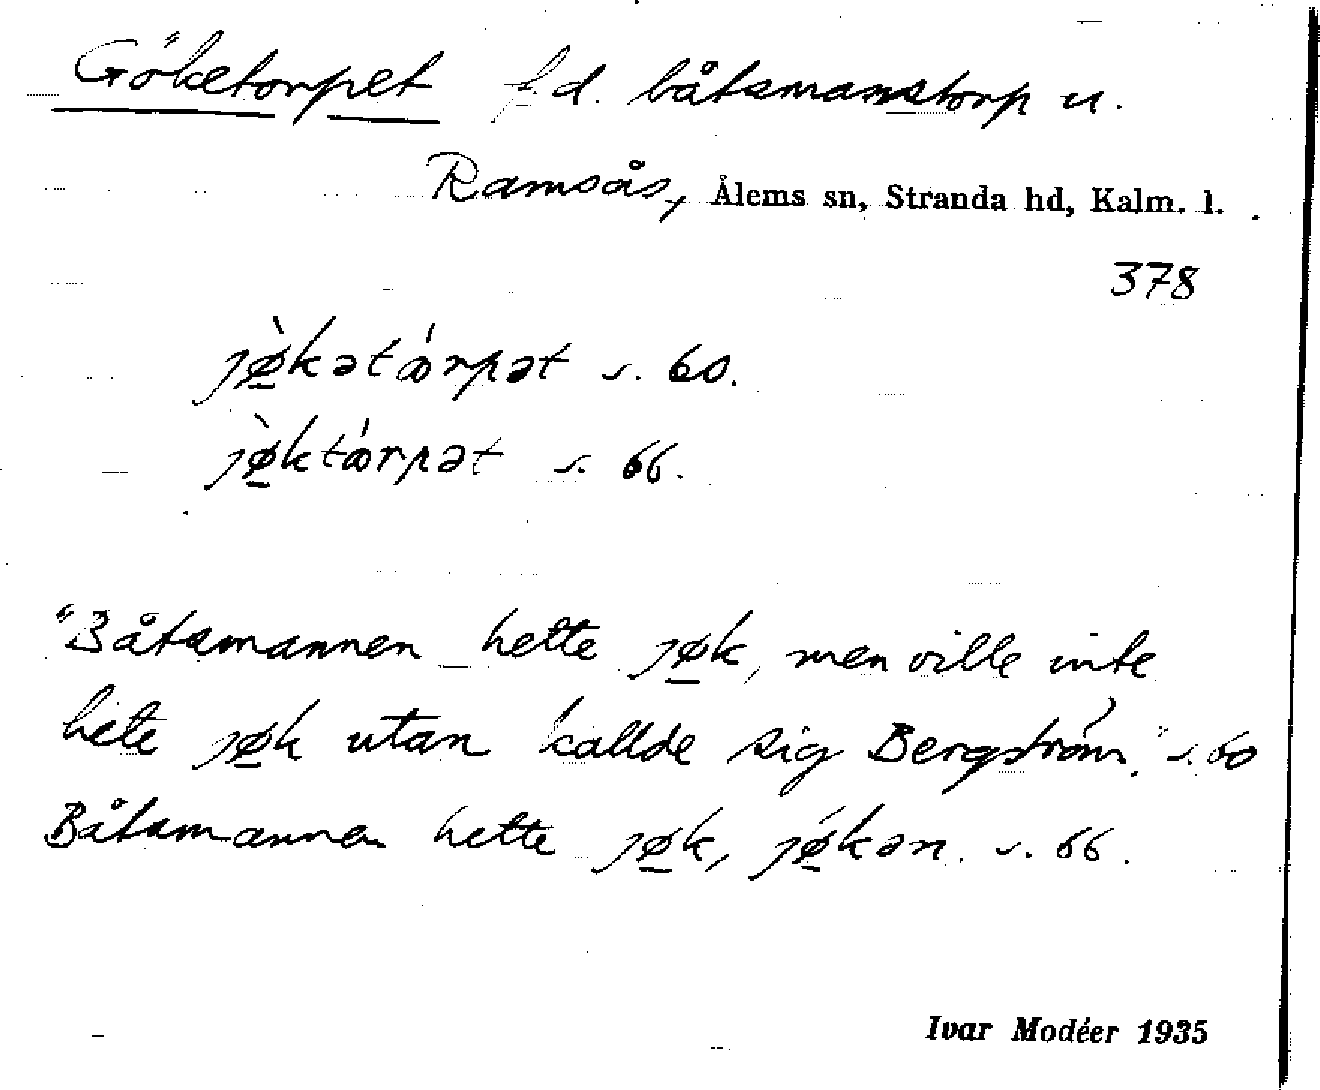 Göketorpet f.d. båtsmanstorp u.
Ramsås, Ålems sn, Stranda hd, Kalm. l.
378
jø̲̀kətǿrpət s. 60.
jø̲̀ktǿrpət s. 66.
"Båtsmannen hette jø̲k, men ville inte
hete jø̲k utan kallde sig Bergström." s. 60
Båtsmannen hette jø̲k, jǿ̲kən. s. 66.
Ivar Modéer 1935